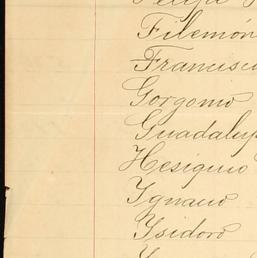 Filemón
Francisc
Gorgonio
Guadalup
Hesiquio
Ygnacio
Ysidoro